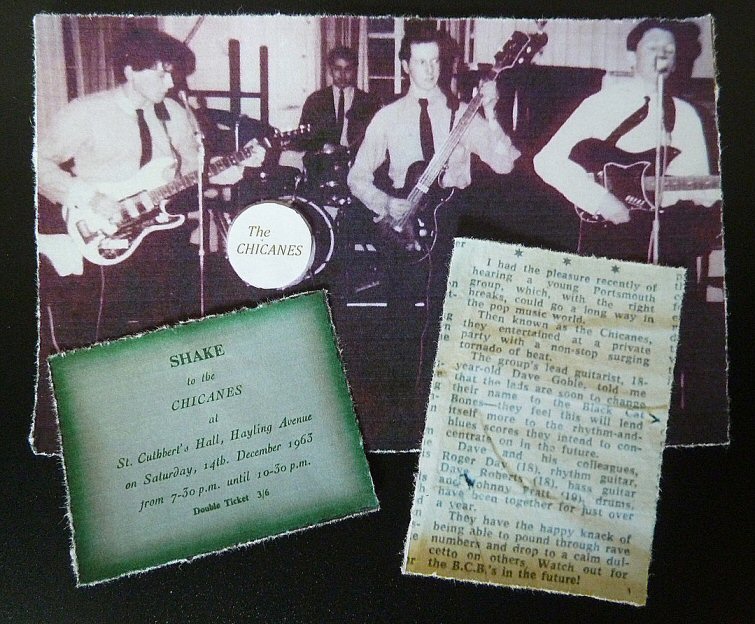 The
CHICANES
SHAKE
to the
CHICANES
at
St. Cuthbert's Hall, Hayling Avenue
on Saturday, 14th. December 1963
from 7-30 p.m. until 10-30 p.m.
Double Ticket 3/6
* * *
I had the pleasure recently of
hearing a young Portsmouth
group, which, with the right
breaks, could go a long way in
the pop music world.
Then known as the Chicanes,
they entertained at a private
party with a non-stop surging
tornado of beat.
The group's lead guitarist, 18-
year-old Dave Goble, told me
that the lads are soon to change
their name to the Black Cat
Bones—they feel this will lend
itself more to the rhythm-and-
blues scores they intend to con-
centrate on in the future.
Dave and his colleagues,
Roger Day (18), rhythm guitar,
Dave Roberts (18), bass guitar
and Johnny Pratt (19), drums,
have been together for just over
a year.
They have the happy knack of
being able to pound through rave
numbers and drop to a calm dul-
cetto on others. Watch out for
the B.C.B.'s in the future!